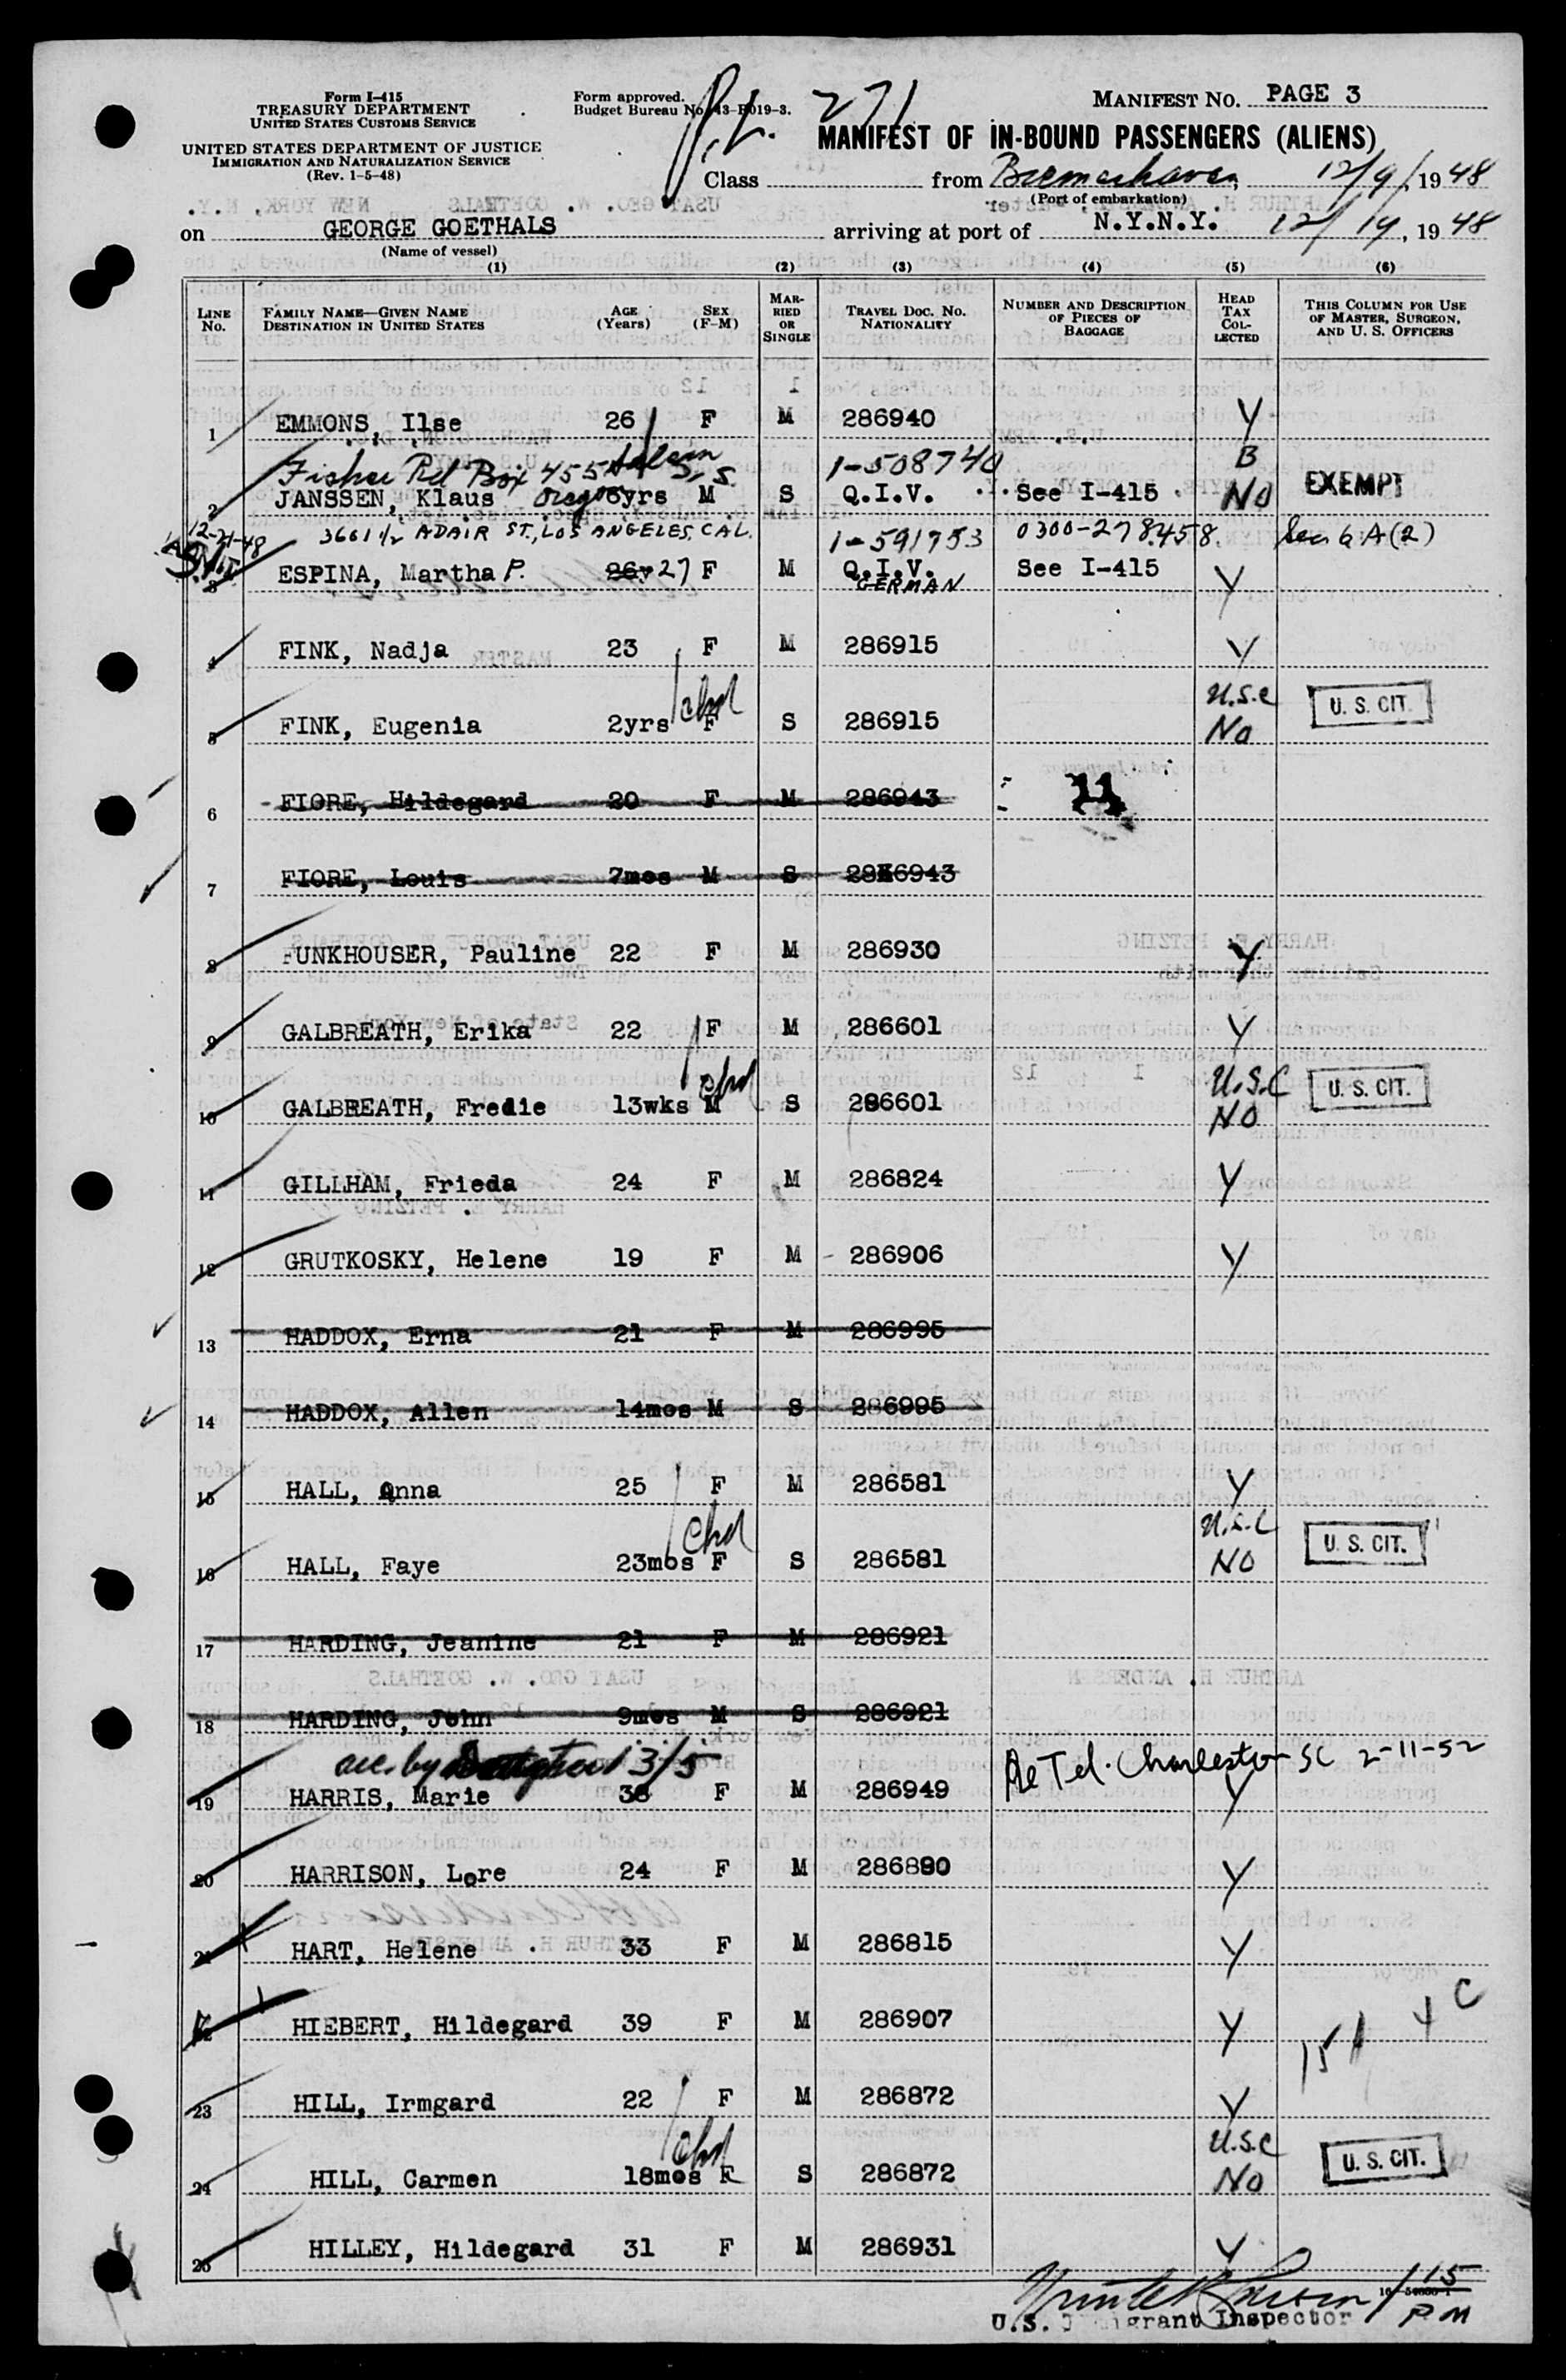 Form I-415
TREASURY DEPARTMENT
UNITED STATES CUSTOMS SERVICE
UNITED STATES DEPARTMENT OF JUSTICE
IMMIGRATION AND NATURALIZATION SERVICE
(Rev. 1-5-48)
Form approved.
Budget Bureau No. 43-R019-3.
271
MANIFEST NO. PAGE 3
MANIFEST OF IN-BOUND PASSENGERS (ALIENS)
Class from Bremerhaven, 12/9, 1948
(Port of embarkation)
on GEORGE GOETHALS arriving at port of N.Y.N.Y. 12/19, 1948
(Name of vessel)
(1) (2) (3) (4) (5) (6)
LINE NO. FAMILY NAME—GIVEN NAME DESTINATION IN UNITED STATES AGE (Years) SEX (F-M) MARRIED OR SINGLE TRAVEL DOC. NO. NATIONALITY NUMBER AND DESCRIPTION OF PIECES OF BAGGAGE HEAD TAX COLLECTED THIS COLUMN FOR USE OF MASTER, SURGEON, AND U. S. OFFICERS
1 EMMONS, Ilse 26 F M 286940 Y
Fisher Rd Box 455 Salem Oregon 1-508740 B
2 JANSSEN, Klaus 6yrs M S Q.I.V. See I-415 NO EXEMPT
12-21-48 3661 1/2 ADAIR ST., LOS ANGELES, CAL. 1-591753 0300-278458 Sec 6 A(2)
3 ESPINA, Martha P. 26y 27 F M Q.I.V. See I-415 Y
GERMAN
4 FINK, Nadja 23 F M 286915 Y
chd U.S.C
5 FINK, Eugenia 2yrs F S 286915 No U. S. CIT.
6 FIORE, Hildegard 20 F M 286943 11
7 FIORE, Louis 7mos M S 28X6943
8 FUNKHOUSER, Pauline 22 F M 286930 Y
9 GALBREATH, Erika 22 F M 286601 Y
chd U.S.C
10 GALBREATH, Fredie 13wks M S 286601 NO U. S. CIT.
11 GILLHAM, Frieda 24 F M 286824 Y
12 GRUTKOSKY, Helene 19 F M 286906 Y
13 HADDOX, Erna 21 F M 286995
14 HADDOX, Allen 14mos M S 286995
15 HALL, Anna 25 F M 286581 Y
chd U.S.C
16 HALL, Faye 23mos F S 286581 NO U. S. CIT.
17 HARDING, Jeanine 21 F M 286921
18 HARDING, John 9mos M S 286921
acc. by 3/5 Re Tel. Charleston SC 2-11-52
19 HARRIS, Marie 38 F M 286949 Y
20 HARRISON, Lore 24 F M 286890 Y
21 HART, Helene 33 F M 286815 Y
22 HIEBERT, Hildegard 39 F M 286907 Y
23 HILL, Irmgard 22 F M 286872 Y
chd U.S.C
24 HILL, Carmen 18mos F S 286872 No U. S. CIT.
25 HILLEY, Hildegard 31 F M 286931 Y
U.S. Immigrant Inspector
115 PM